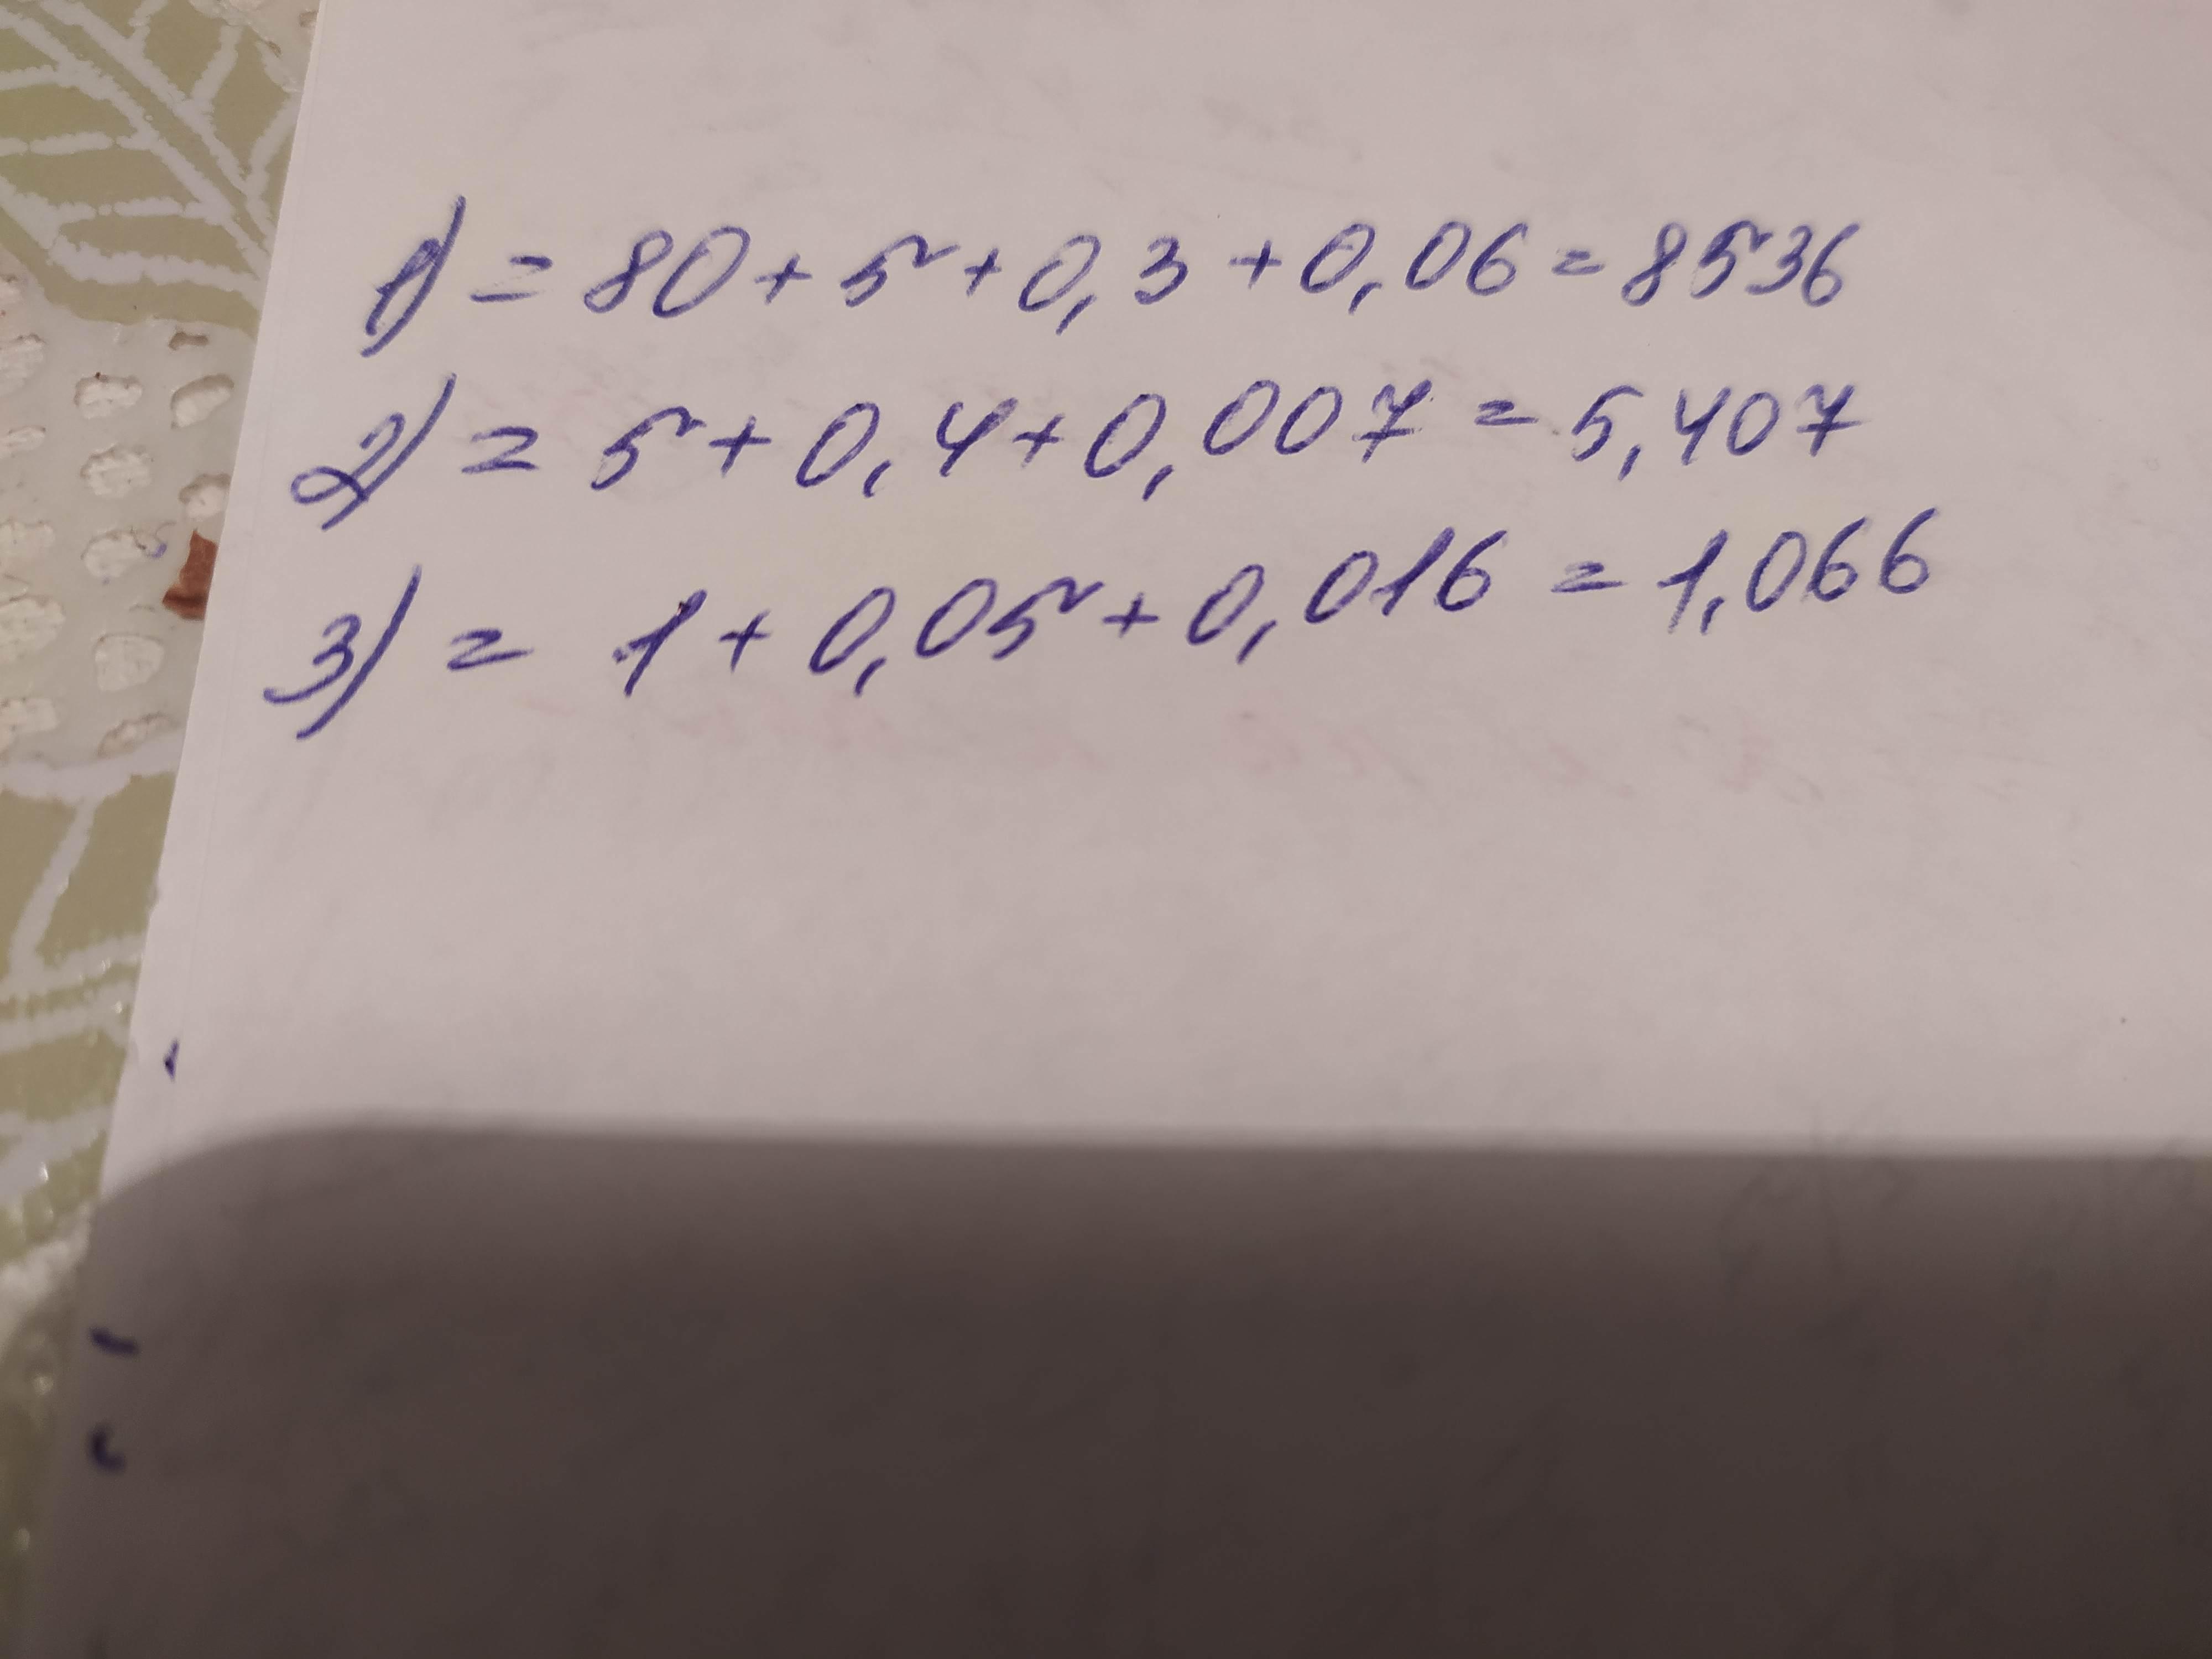 1) = 80 + 5 + 0,3 + 0,06 = 8536
2) = 5 + 0,4 + 0,007 = 5,407
3) = 1 + 0,05 + 0,016 = 1,066